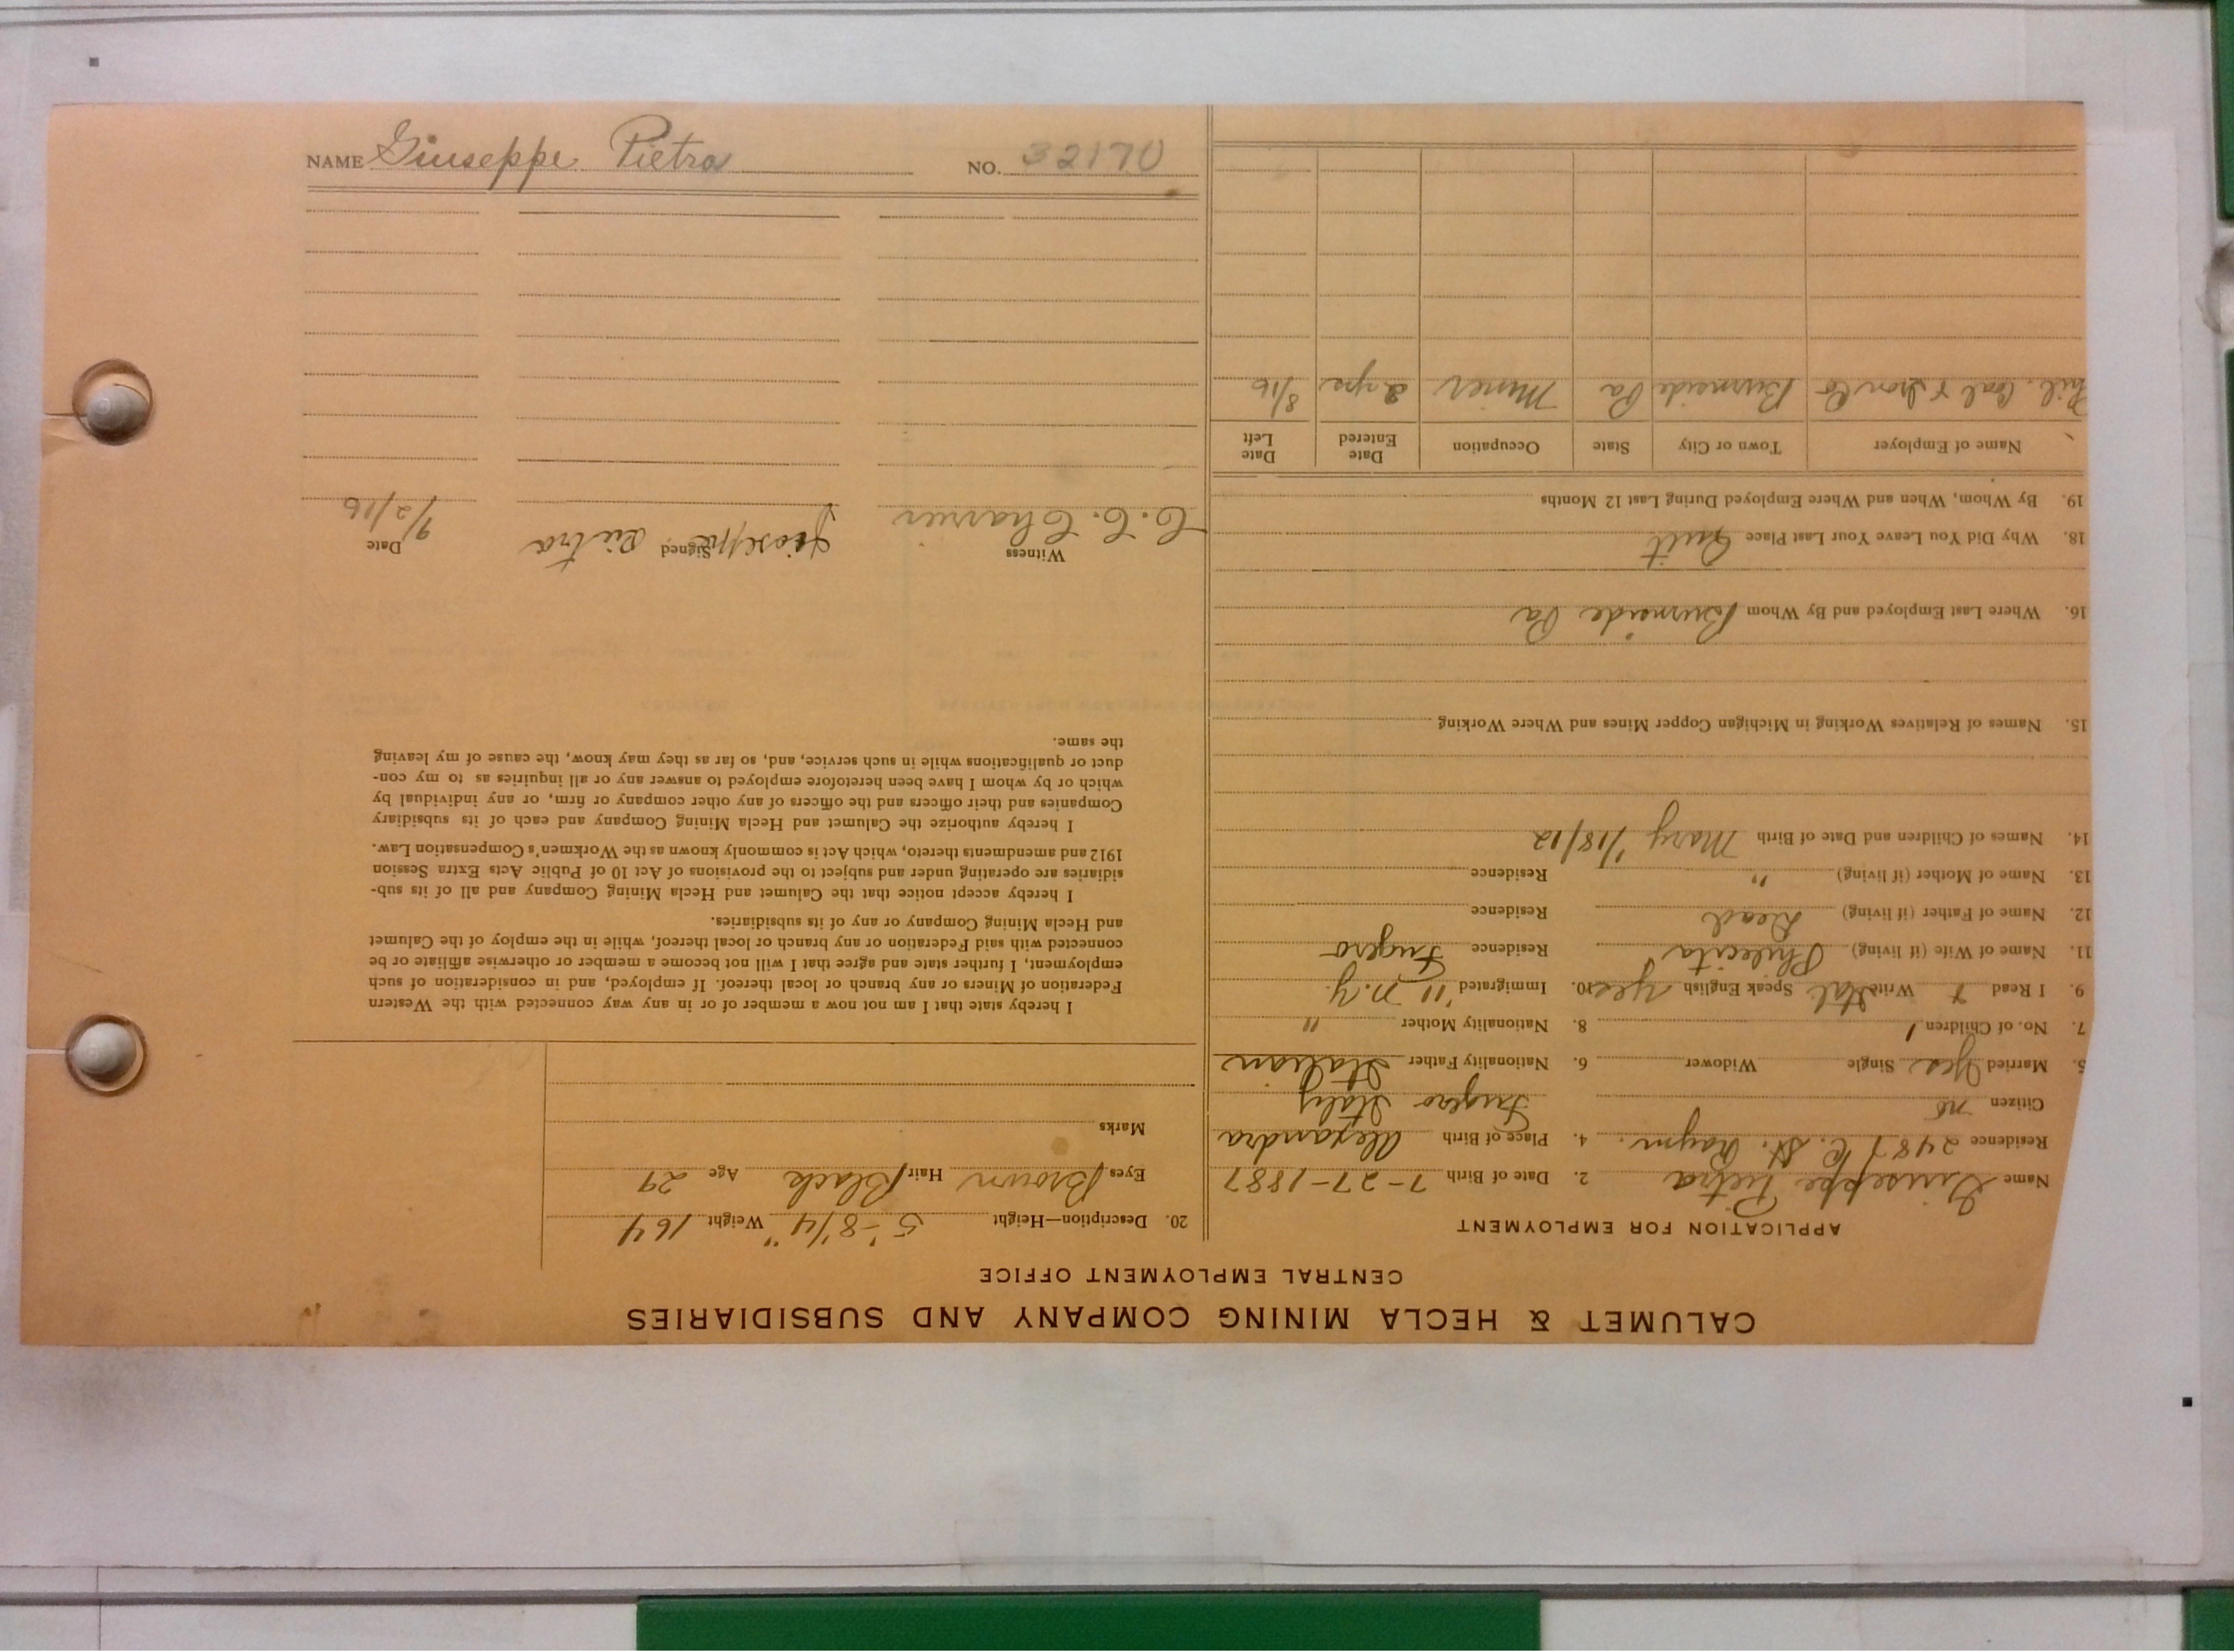 NAME Giuseppe Pietra NO. 32170
CALUMET & HECLA MINING COMPANY AND SUBSIDIARIES
CENTRAL EMPLOYMENT OFFICE
APPLICATION FOR EMPLOYMENT
Name Giuseppe Pietra 2. Date of Birth 7-27-1887
Residence 2487 C. St. Raym. 4. Place of Birth Alexandra
Citizen no Italy
5. Married Yes Single Widower 6. Nationality Father Italian
7. No. of Children 1 8. Nationality Mother "
9. I Read Write Ital Speak English yes 10. Immigrated '11 N.Y.
11. Name of Wife (if living) Philecita Residence
12. Name of Father (if living) Dead Residence
13. Name of Mother (if living) " Residence
14. Names of Children and Date of Birth Mary 1/18/12
15. Names of Relatives Working in Michigan Copper Mines and Where Working
16. Where Last Employed and By Whom Burnside Pa
18. Why Did You Leave Your Last Place Quit
19. By Whom, When and Where Employed During Last 12 Months
Name of Employer Town or City State Occupation Date Entered Date Left
Coal & Iron Co Burnside Pa Miner 2 yrs 8/16
20. Description—Height 5'-8 1/4" Weight 164
Eyes Brown Hair Black Age 29
Marks
I hereby state that I am not now a member of or in any way connected with the Western
Federation of Miners or any branch or local thereof. If employed, and in consideration of such
employment, I further state and agree that I will not become a member or otherwise affiliate or be
connected with said Federation or any branch or local thereof, while in the employ of the Calumet
and Hecla Mining Company or any of its subsidiaries.
I hereby accept notice that the Calumet and Hecla Mining Company and all of its sub-
sidiaries are operating under and subject to the provisions of Act 10 of Public Acts Extra Session
1912 and amendments thereto, which Act is commonly known as the Workmen's Compensation Law.
I hereby authorize the Calumet and Hecla Mining Company and each of its subsidiary
Companies and their officers and the officers of any other company or firm, or any individual by
which or by whom I have been heretofore employed to answer any or all inquiries as to my con-
duct or qualifications while in such service, and, so far as they may know, the cause of my leaving
the same.
Witness Signed Date
C. C. Charrier Gioseppe Pietra 9/2/16